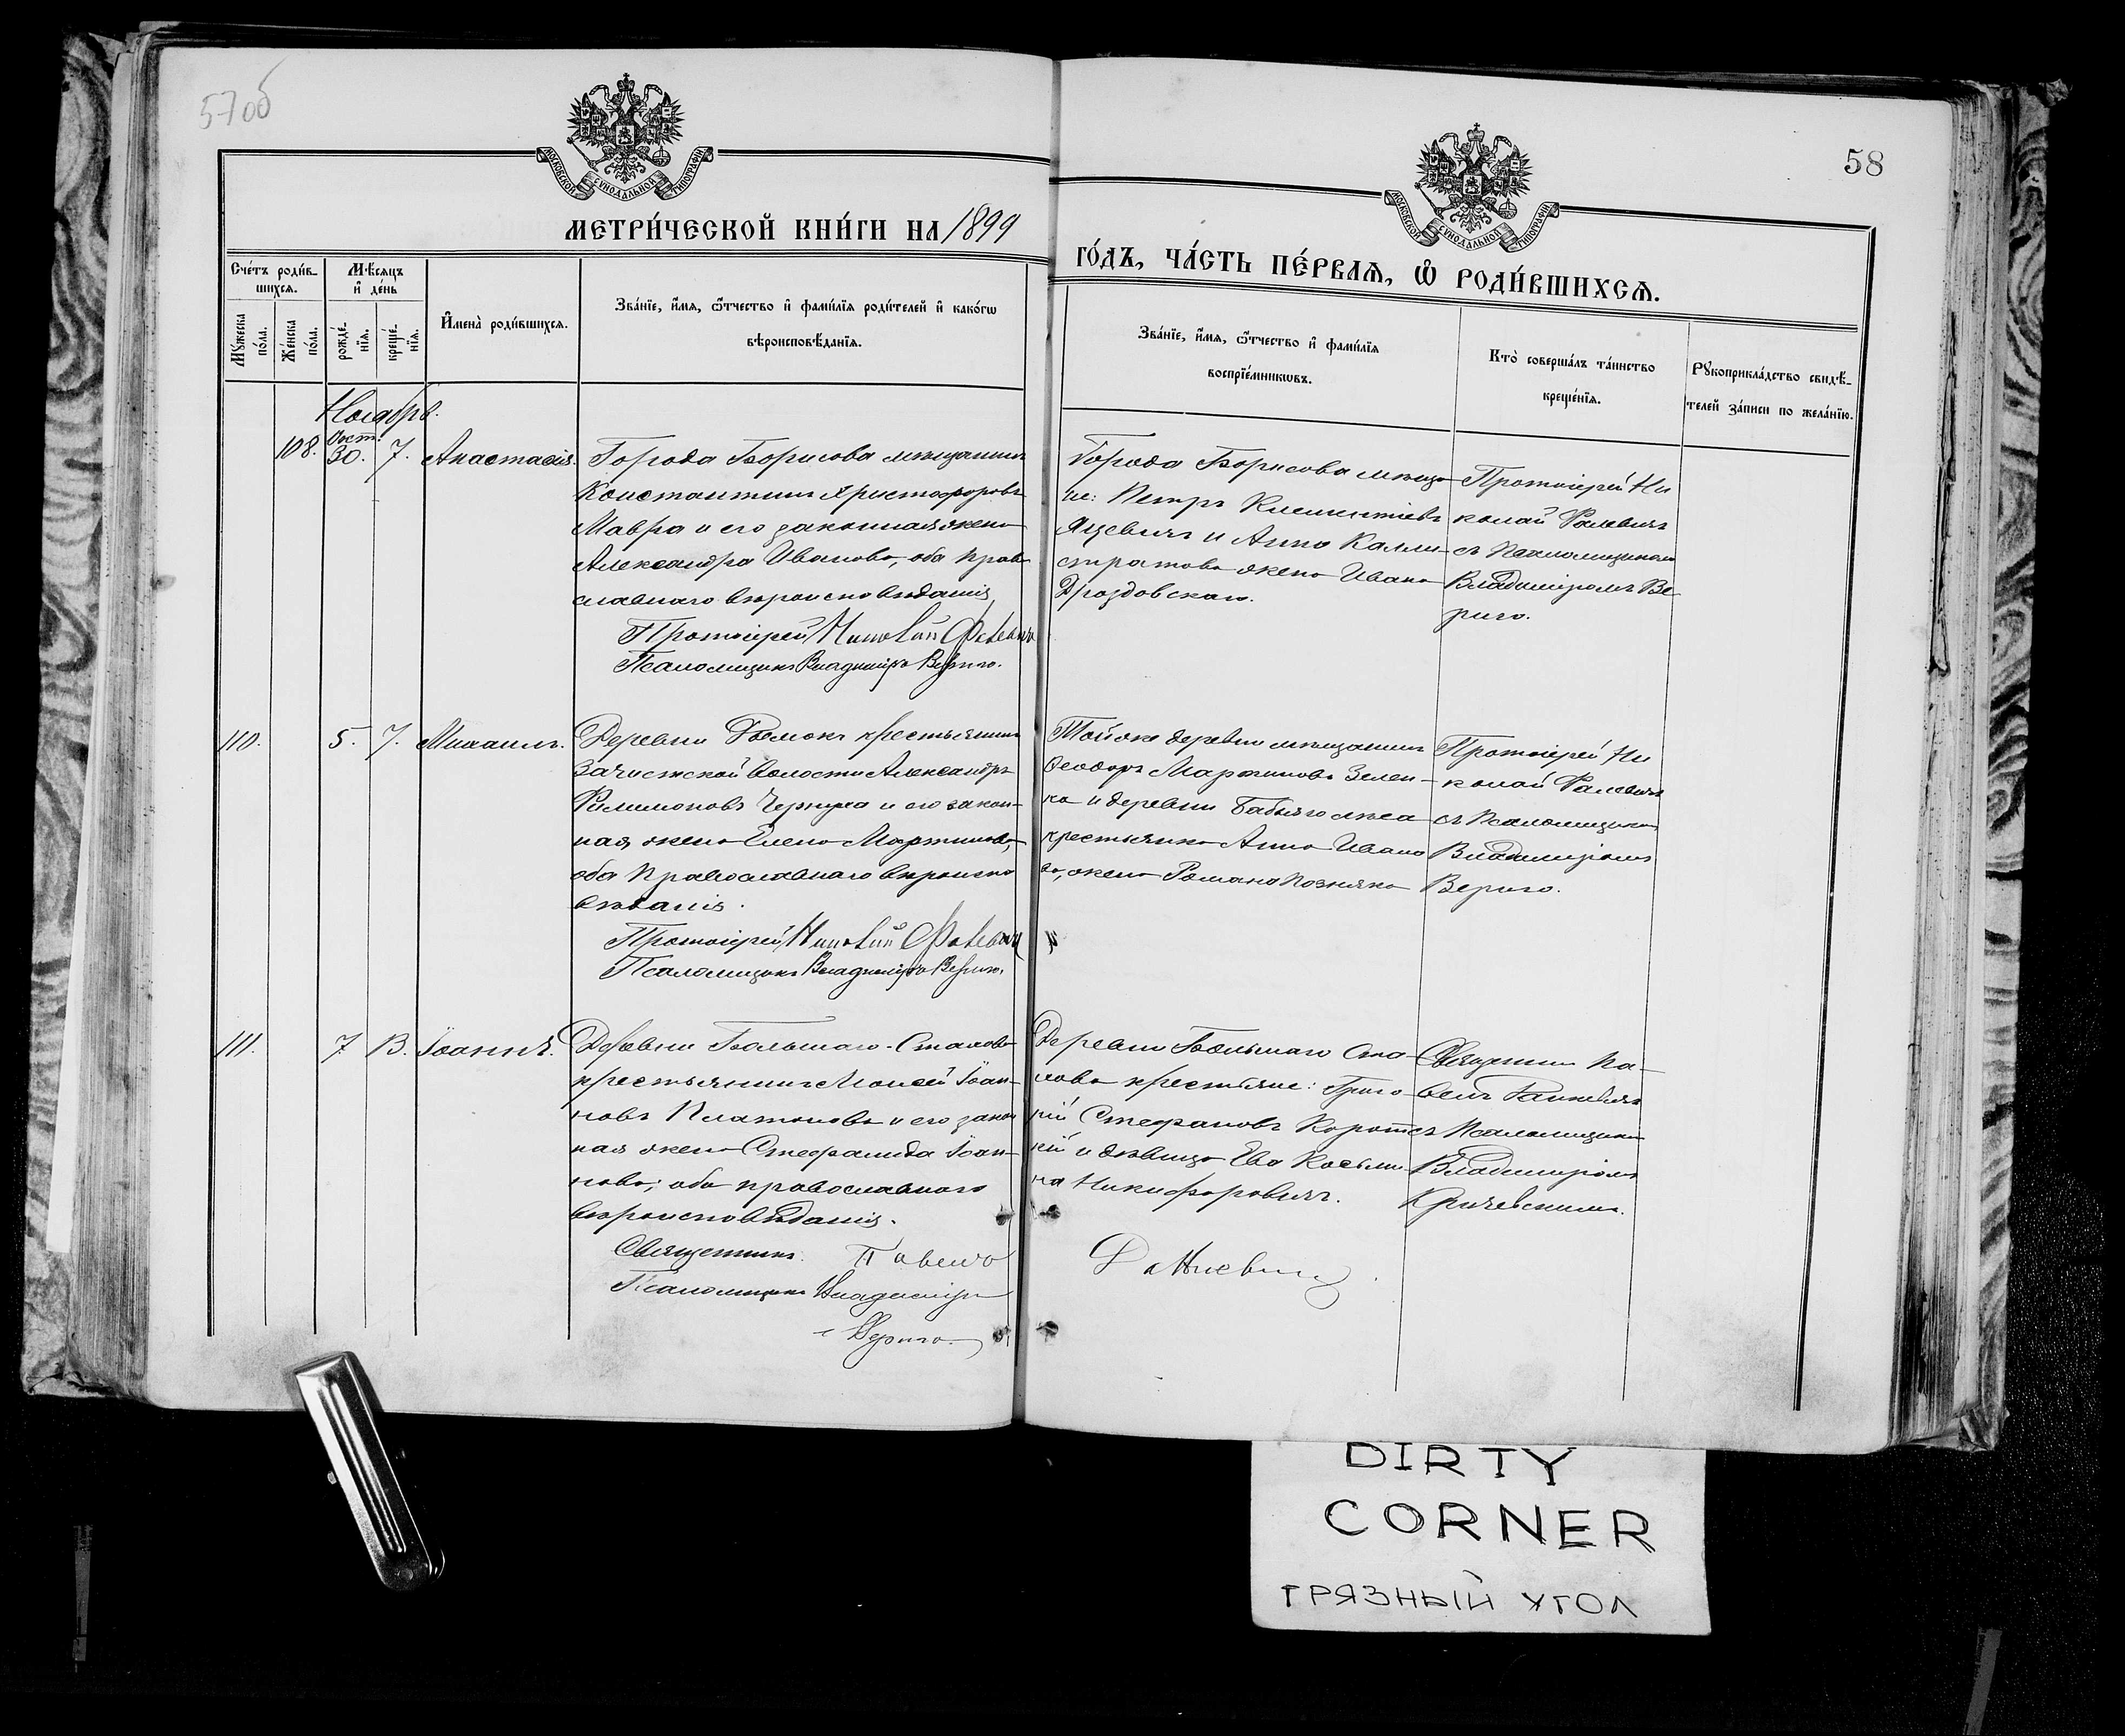 57об
58
МОСКОВСКОЙ СѴНОДАЛЬНОЙ ТИПОГРАФІИ
МОСКОВСКОЙ СѴНОДАЛЬНОЙ ТИПОГРАФІИ
МЕТРИ́ЧЕСКОЙ КНИ́ГИ НА 1899
ГО́ДЪ, ЧА́СТЬ ПЕ́РВАѦ, Ѽ РОДИ́ВШИХСѦ.
Сче́тъ роди́в-
шихсѧ.
Мѣ́сѧцъ
и҆ де́нь
Мꙋ́жеска по́ла.
Же́нска по́ла.
рожде́-
нїѧ.
креще́-
нїѧ.
И҆мена̀ роди́вшихсѧ.
Зва́нїе, и҆́мѧ, ѻ҆́тчество и҆ фами́лїѧ роди́телей и҆ како́гѡ
вѣроисповѣ́данїѧ.
Зва́нїе, и҆́мѧ, ѻ҆́тчество и҆ фами́лїѧ
воспрїе́мникѡвъ.
Кто̀ соверша́лъ та́инство
креще́нїѧ.
Рꙋкоприкла́дство свидѣ́-
телей за́писи по жела́нїю.
Ноябрь.
Окт.
108. 30. 7. Анастасія.
Города Борисова мѣщанинъ
Константинъ Христофоровъ
Мавра и его законная жена
Александра Иванова, оба право
славнаго вѣроисповѣданія
Протоіерей Николай Фалевичъ
Псаломщикъ Владиміръ Верига.
Города Борисова мѣща
не: Петръ Климентіевъ
Яцевичъ и Анна Калли-
стратова жена Ивана
Дроздовскаго.
Протоіерей Ни
колай Фалевичъ
съ Псаломщикомъ
Владиміромъ Ве-
риго.
110. 5. 7. Михаилъ.
Деревни крестьянинъ
Зачистской волости Александръ
Филимоновъ Чернуха и его закон-
ная жена Елена Мартинова,
оба православнаго вѣроиспо
вѣданія.
Протоіерей Николай Фалевичъ
Псаломщикъ Владиміръ Верига.
Той же деревни мѣщанинъ
Ѳеодоръ Мартиновъ Зелен-
ко и деревни
крестьянка Анна Ивано
ва, жена Романа Позняка
Протоіерей Ни
колай Фалевичъ
съ Псаломщикомъ
Владиміромъ
Вериго.
111. 7. В. Іоаннъ.
Деревни Большаго-Стахова
крестьянинъ Моисей Іоан-
новъ Платоновъ и его закон
ная жена Стефанида Іоан-
нова; оба православнаго
вѣроисповѣданія.
Священникъ Павелъ
Псаломщикъ Владиміръ
Верига.
Деревни Большаго Ста-
хова крестьяне: Григо-
рій Стефановъ Корот
кій и дѣвица Ева Косьми-
на Никифоровичъ.
Священникъ Па-
велъ
съ Псаломщикомъ
Владиміромъ
Кричевскимъ.
DIRTY
CORNER
ГРЯЗНЫЙ УГОЛ